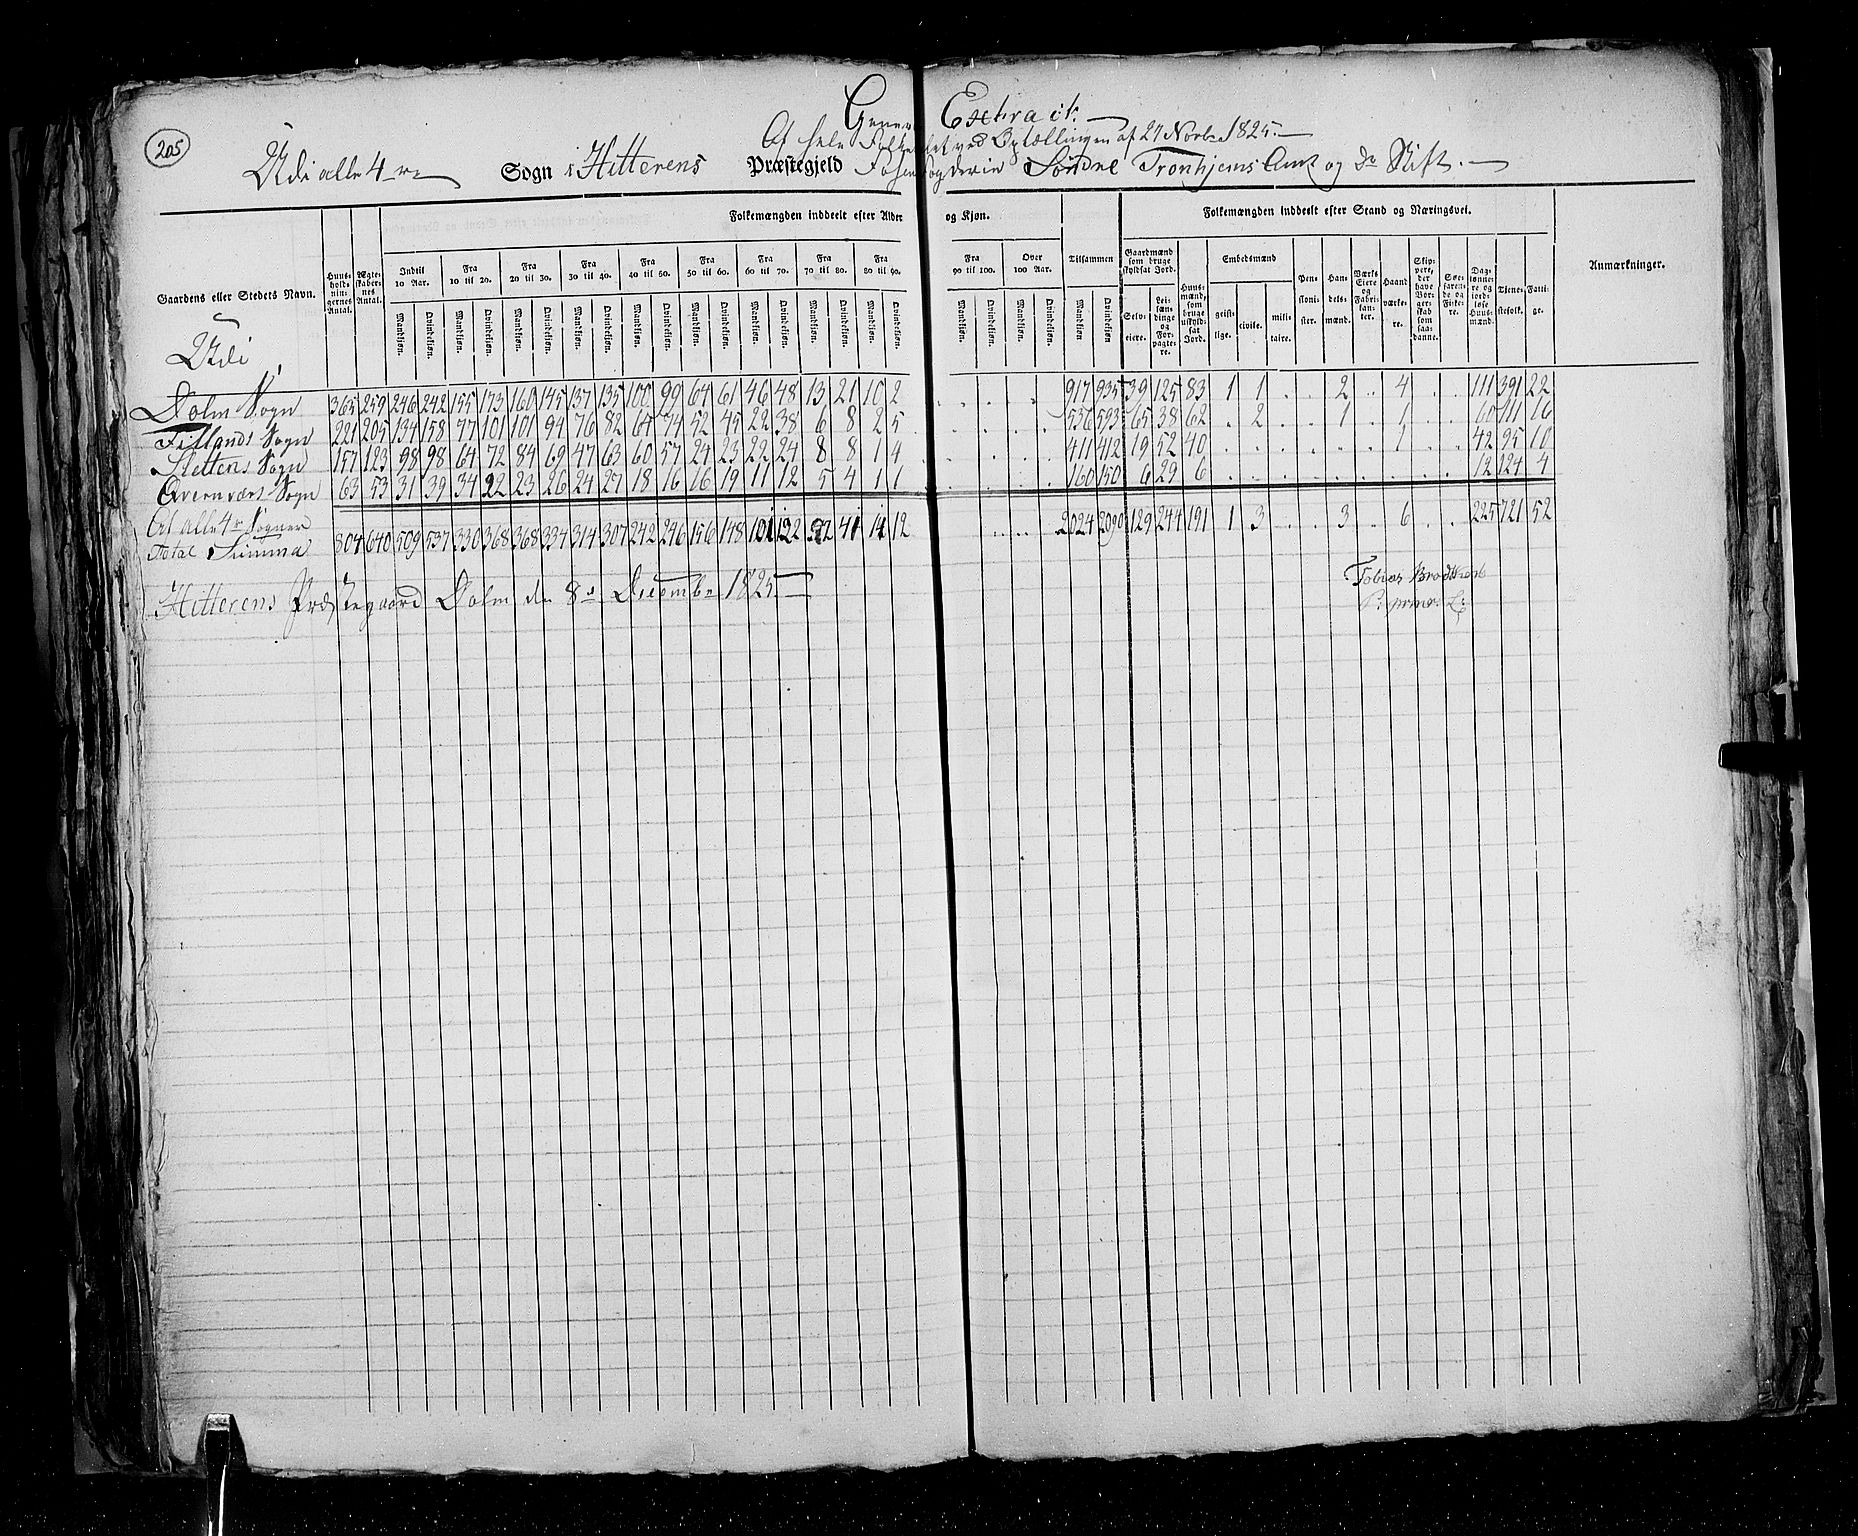 205
Extract.
Af hele Folketallet ved Optællingen af 27 Novbr 1825.
Udi alle 4re Sogn i Hitterens Præstegjeld Fosens Fogderie in Søndre Tronhjems Amt og do Stift.
Folkemængden inddeelt efter Alder og Kjøn. Folkemængden inddeelt efter Stand og Næringsvei.
Gaardens eller Stedets Navn. Huusholdningernes Antal. Ægteskabernes Antal. Indtil 10 Aar. Fra 10 til 20. Fra 20 til 30. Fra 30 til 40. Fra 40 til 50. Fra 50 til 60. Fra 60 til 70. Fra 70 til 80. Fra 80 til 90. Fra 90 til 100. Over 100 Aar. Tilsammen Gaardmænd som bruge skyldsat Jord. Huusmænd, som bruge uskyldsat Jord. Embedsmænd Pensionister. Handelsmænd. Værks Eiere og Fabrikanter. Haandværkere. Skippere, der have Borgerskab som saadanne. Søefarende og Fiskere. Daglønnere og jordløse Huusmænd. Tjenestefolk. Fattige. Anmærkninger.
Mandkjøn. Qvindekjøn. Mandkjøn. Qvindekjøn. Mandkjøn. Qvindekjøn. Mandkjøn. Qvindekjøn. Mandkjøn. Qvindekjøn. Mandkjøn. Qvindekjøn. Mandkjøn. Qvindekjøn. Mandkjøn. Qvindekjøn. Mandkjøn. Qvindekjøn. Mandkjøn. Qvindekjøn. Mandkjøn. Qvindekjøn. Mandkjøn Qvindekjøn Selveiere. Leilændinge og Forpagtere. geistlige. civile. militaire.
Udi
Dolm Sogn 365 259 246 242 155 173 160 145 137 135 100 99 64 61 46 48 13 21 10 2 917 935 39 125 83 1 1 . . 2 . . 4 . . 111 391 22
Fillands Sogn 221 205 134 158 77 101 101 94 76 82 64 74 52 45 22 38 6 8 2 5 536 593 65 38 62 . 2 . . 1 . . 1 . . 60 111 16
Slettens Sogn 157 123 98 98 64 72 84 69 47 63 60 57 24 23 22 24 8 8 1 4 411 412 19 52 40 . . . . . . 1 . . 42 95 10
Qvernvært Sogn 63 53 31 39 34 22 23 26 24 27 18 16 16 19 11 12 5 4 1 1 160 150 6 29 6 . . . . . . . . 12 124 4
Af alle 4re Sogner
Total Summa 804 640 509 537 330 368 368 334 314 307 242 246 156 148 101 122 32 41 14 12 2024 2090 129 244 191 1 3 . . 3 . . 6 . . 225 721 52
Hitterens Præstegaard Dolm den 8de Decembr 1825
Tobias Brodtkorb